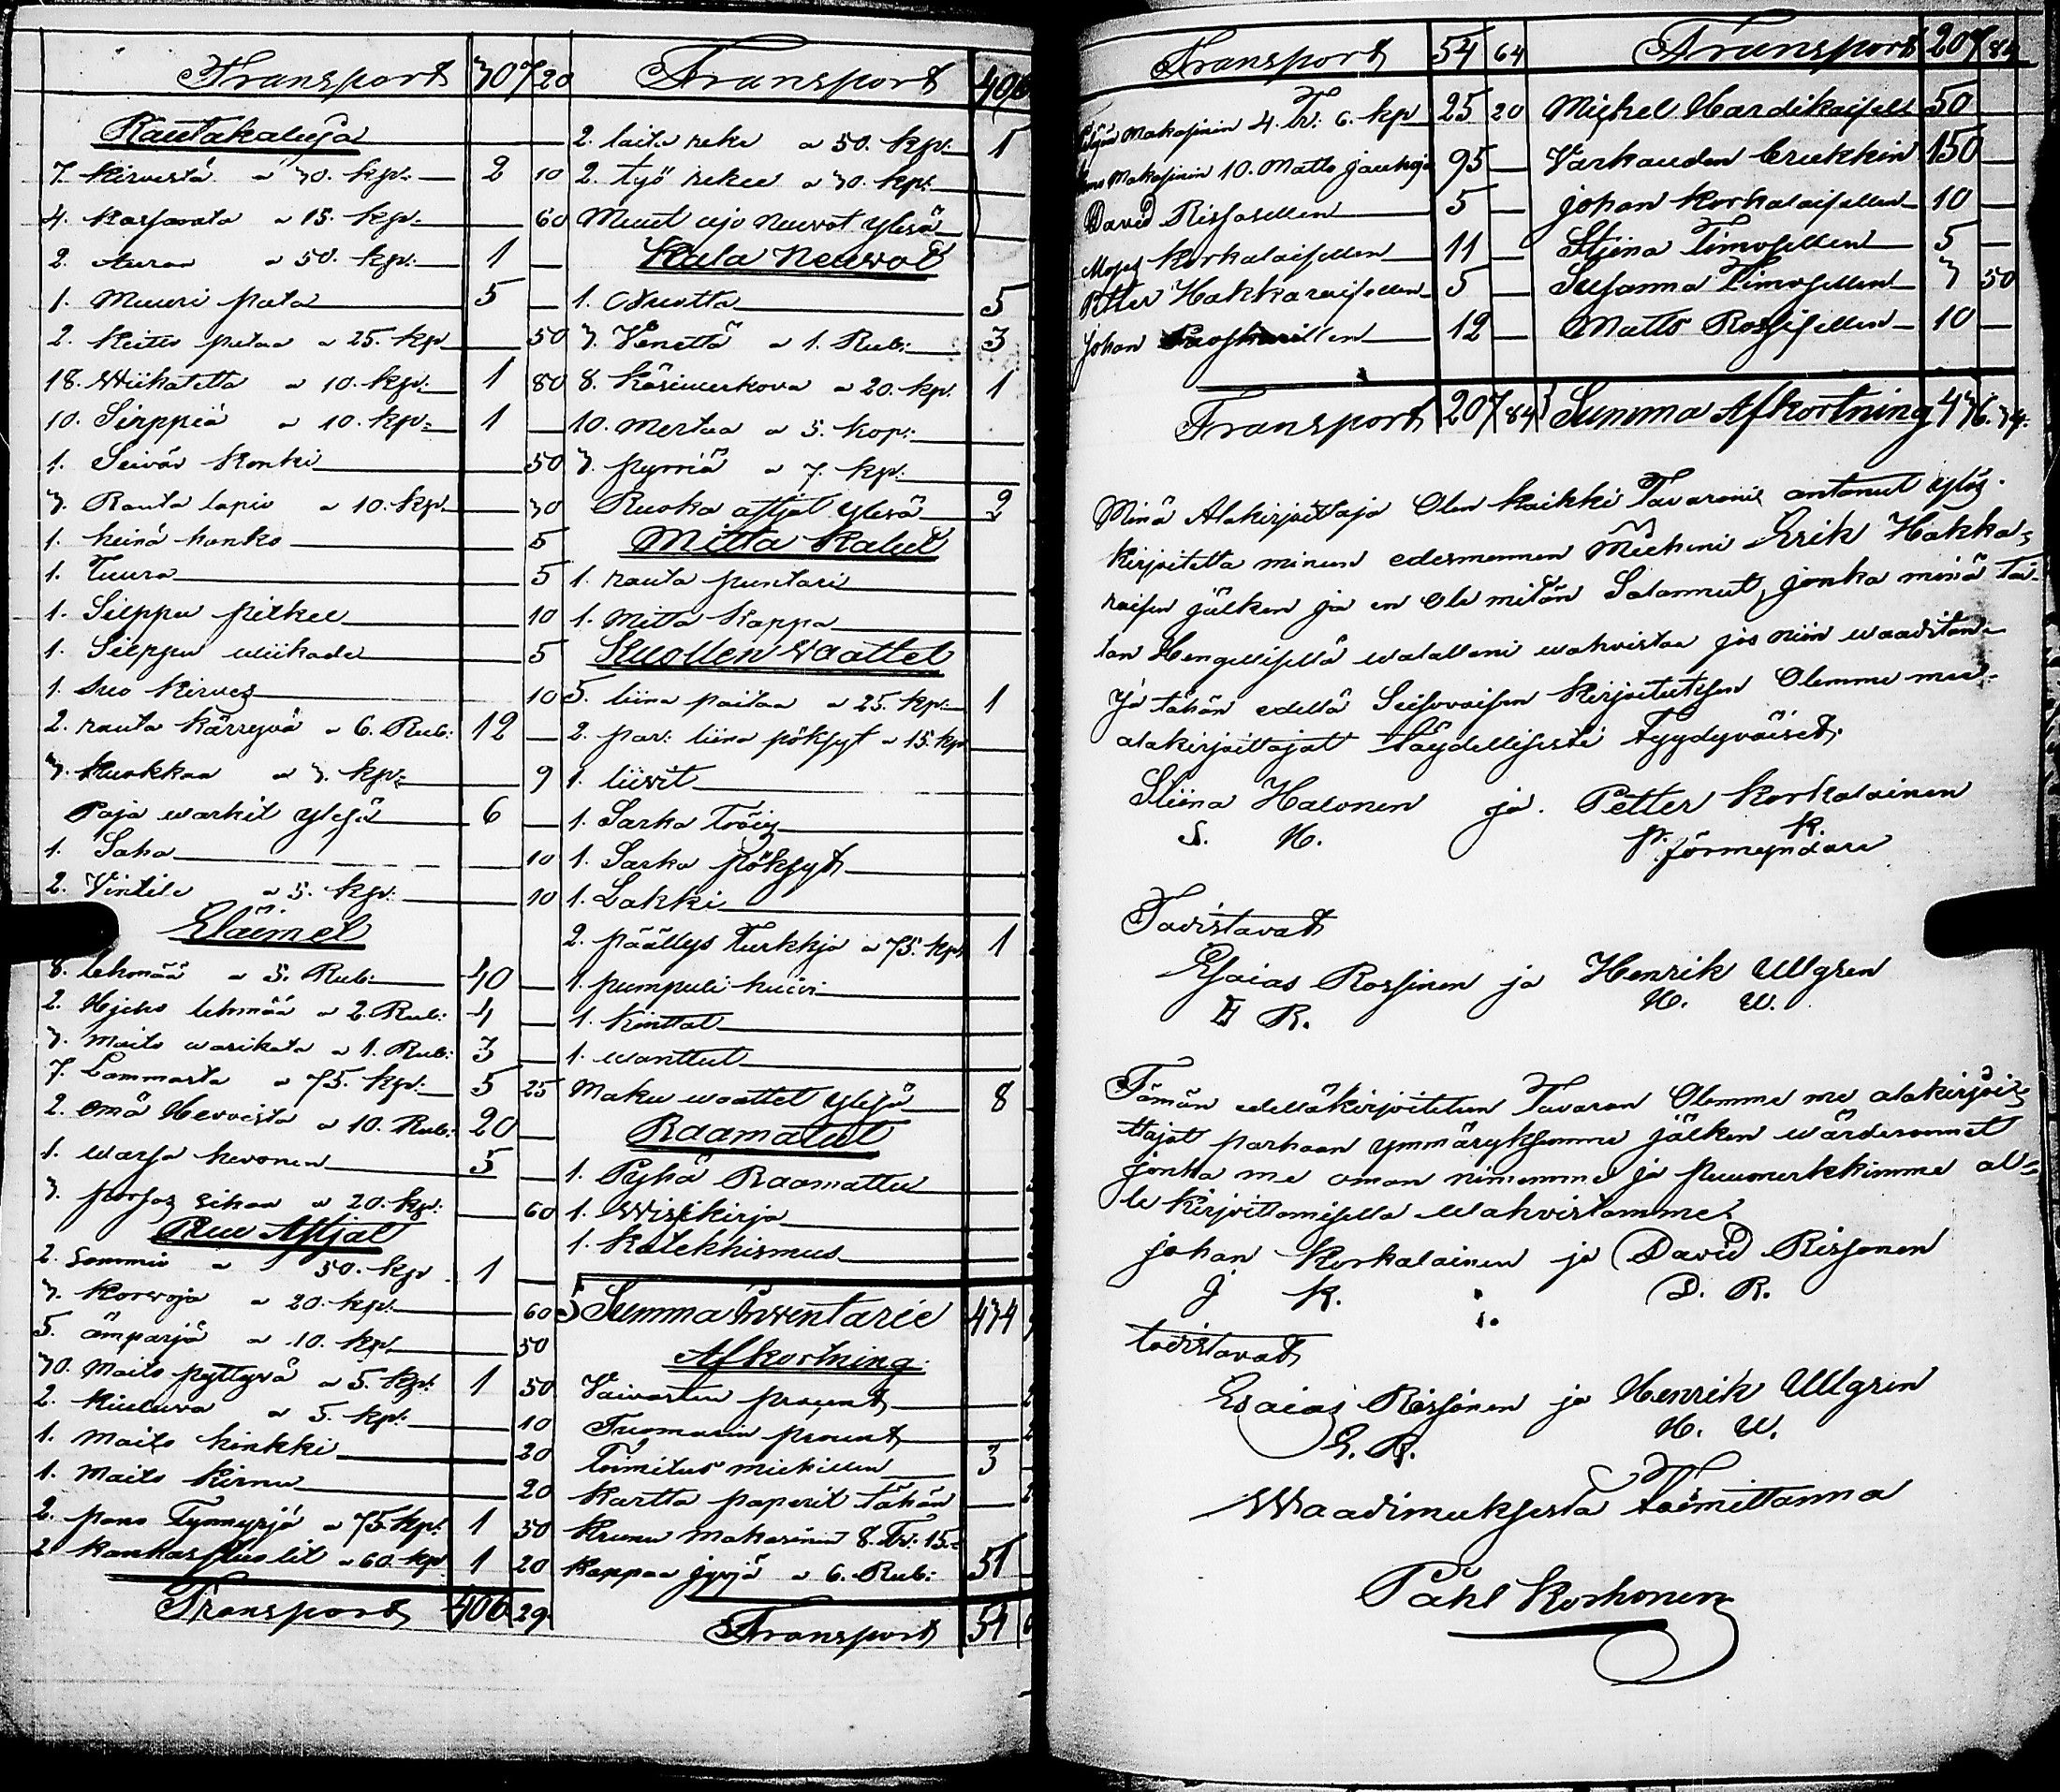 Transport 307 20
Rautakaluja
7. Kirvestä a 30. kp: 2 10
4. Kassarata a 15. kp: 60
2. Auraa a 50. kp: 1 —
1. Muuri pata 5 —
2. Keitto pataa a 25. kp 50
18. Wiikatetta a 10. kp: 1 80
10. Sirppiä a 10. kp: 1 —
1. Seiväs Konki 50
3. Rauta lapio a 10. kp 30
1. heinä hanko 5
1. Tuura 5
1. Silppu pitkel 10
1. Silppu wiikade 5
1. Suo Kirves 10
2. rauta kärryvä a 6. Rub: 12 —
3. Kuokkaa a 3. kp: 9
Paja warkit ylesä 6 —
1. Saha 10
2. Vintile a 5. kp: 10
Eläimet
8. lehmää a 5. Rub: 40 —
2. Hjeho lehmää a 2. Rub: 4 —
3. Maito wasikata a 1. Rub: 3 —
7. Lammasta a 75. kp: 5 25
2. emä Hevoista a 10. Rub: 20 —
1. warsa hevonen 5 —
3. porsas sikaa a 20. kp: 60
Puu Astjat
2. Sammio a 50. kp 1 —
3. Korvoja a 20. kp: 60
5. ämparjä a 10. kp: 50
30. Maito pyttyvä a 5. kp: 1 50
2. Kiuluva a 5. kp: 10
1. Maito hinkki 20
1. Maito Kirnu 20
2. pano Tynnyrjä a 75 kp: 1 50
2 Kankas puolit a 60. kp 1 20
Transport 406 29
Transport 406
2. laita reke a 50. kp: 1
2. työ rekee a 30. kp:
Muut ajo neuvot ylesä
Kala Neuvot
1. Nuotta 5
3. Venettä a 1. Rub: 3
8. Käsiwerkova a 20. kp. 1
10. Mertaa a 5. kop:
3. pyrriä a 7. kp:
Ruoka astjat ylesä 2
Mitta Kalut
1. rauta puntari
1. Mitta Kappa
Kuollen Waattet
5. liina paitaa a 25. kp: 1
2. par: liina pöksyt a 15. kp
1. liivit
1. Sarka Tröiy
1. Sarka pöksyt
1. Lakki
2. päällys Turkkja a 75. kp: 1
1. pumpuli huivi
1. Kinttat
1. wanttut
Maku waattet ylesä 8
Raamatut
1. Pyhä Raamattu
1. Wisikirja
1. Katekhismus
Summa Inventarie 434
Afkortning.
Vaivasten prosent
Tuomarin prosent
Toimitus miehillen 3
Kartta paperit tähän
Krunu Makasinin 8. Tr: 15.
Kappaa jyvjä a 6. Rub: 51
Transport 54
Transport 54 64
Makasinin 4. Tr: 6. kp 25 20
Makasinin 10. Matto jauhoja 95 —
David Rissasellen 5 —
Moses Korkalaisellen 11 —
Petter Hakkaraisellen 5 —
Johan 12 —
Transport 207 84
Transport 207 84
Michel Hardikaisell. 50 —
Varkauden Crukkin 150 —
Johan Korkalaisellen 10 —
Stiina Timosellen 5 —
Susanna Timosellen 3 50
Matts Rossisellen 10 —
Summa Afkortning 436. 34.
Minä Alakirjoittaja Olen kaikki Tavaroni antanut ylös
kirjoitetta minun edesmennen Mieheni Erik Hakka-
raisen jälken ja en Ole mitän Salannut, jonka minä tai-
tan Hengellisellä walallani wahvistaa jos niin waaditan.
Ja tähän edellä Seisovaisen Kirjoituksen Olemme me
alakirjoittajat täydellisesti tyydyväiset.
Stiina Halonen ja. Petter Korkalainen
S. H. P. K.
förmyndare
Todistavat
Esaias Rossinen ja Henrik Ullgren
E R. H. U.
Tämän edelläkirjoitetun Tavaran Olemme me alakirjoi-
ttajat parhaan ymmäryksemme jälken wärderannet
jonka me oman nimemme ja puumerkkimme al-
le kirjoittamisella Wahvistamme.
Johan Korkalainen ja David Rissanen
J K. D. R.
todistavat
Esaias Rissanen ja Henrik Ullgren
E. R. H. U.
Waadimuksesta Toimittanna
Påhl Korhonen